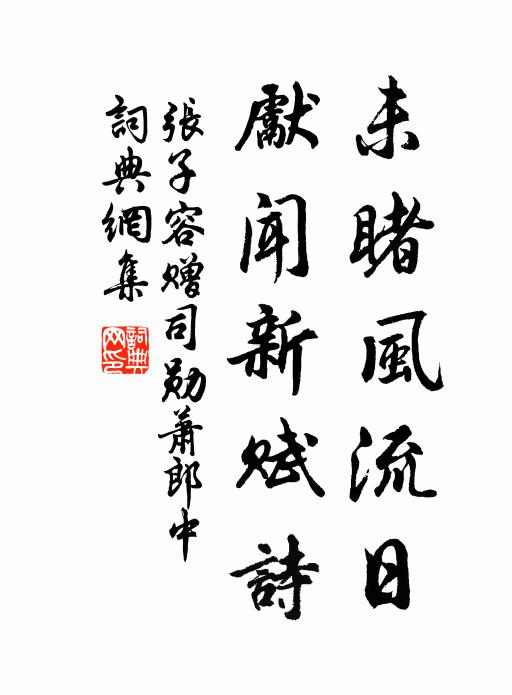 未睹風流日
獻聞新賦詩
張子容贈司勛蕭郎中
詞典網集
詞典
网印